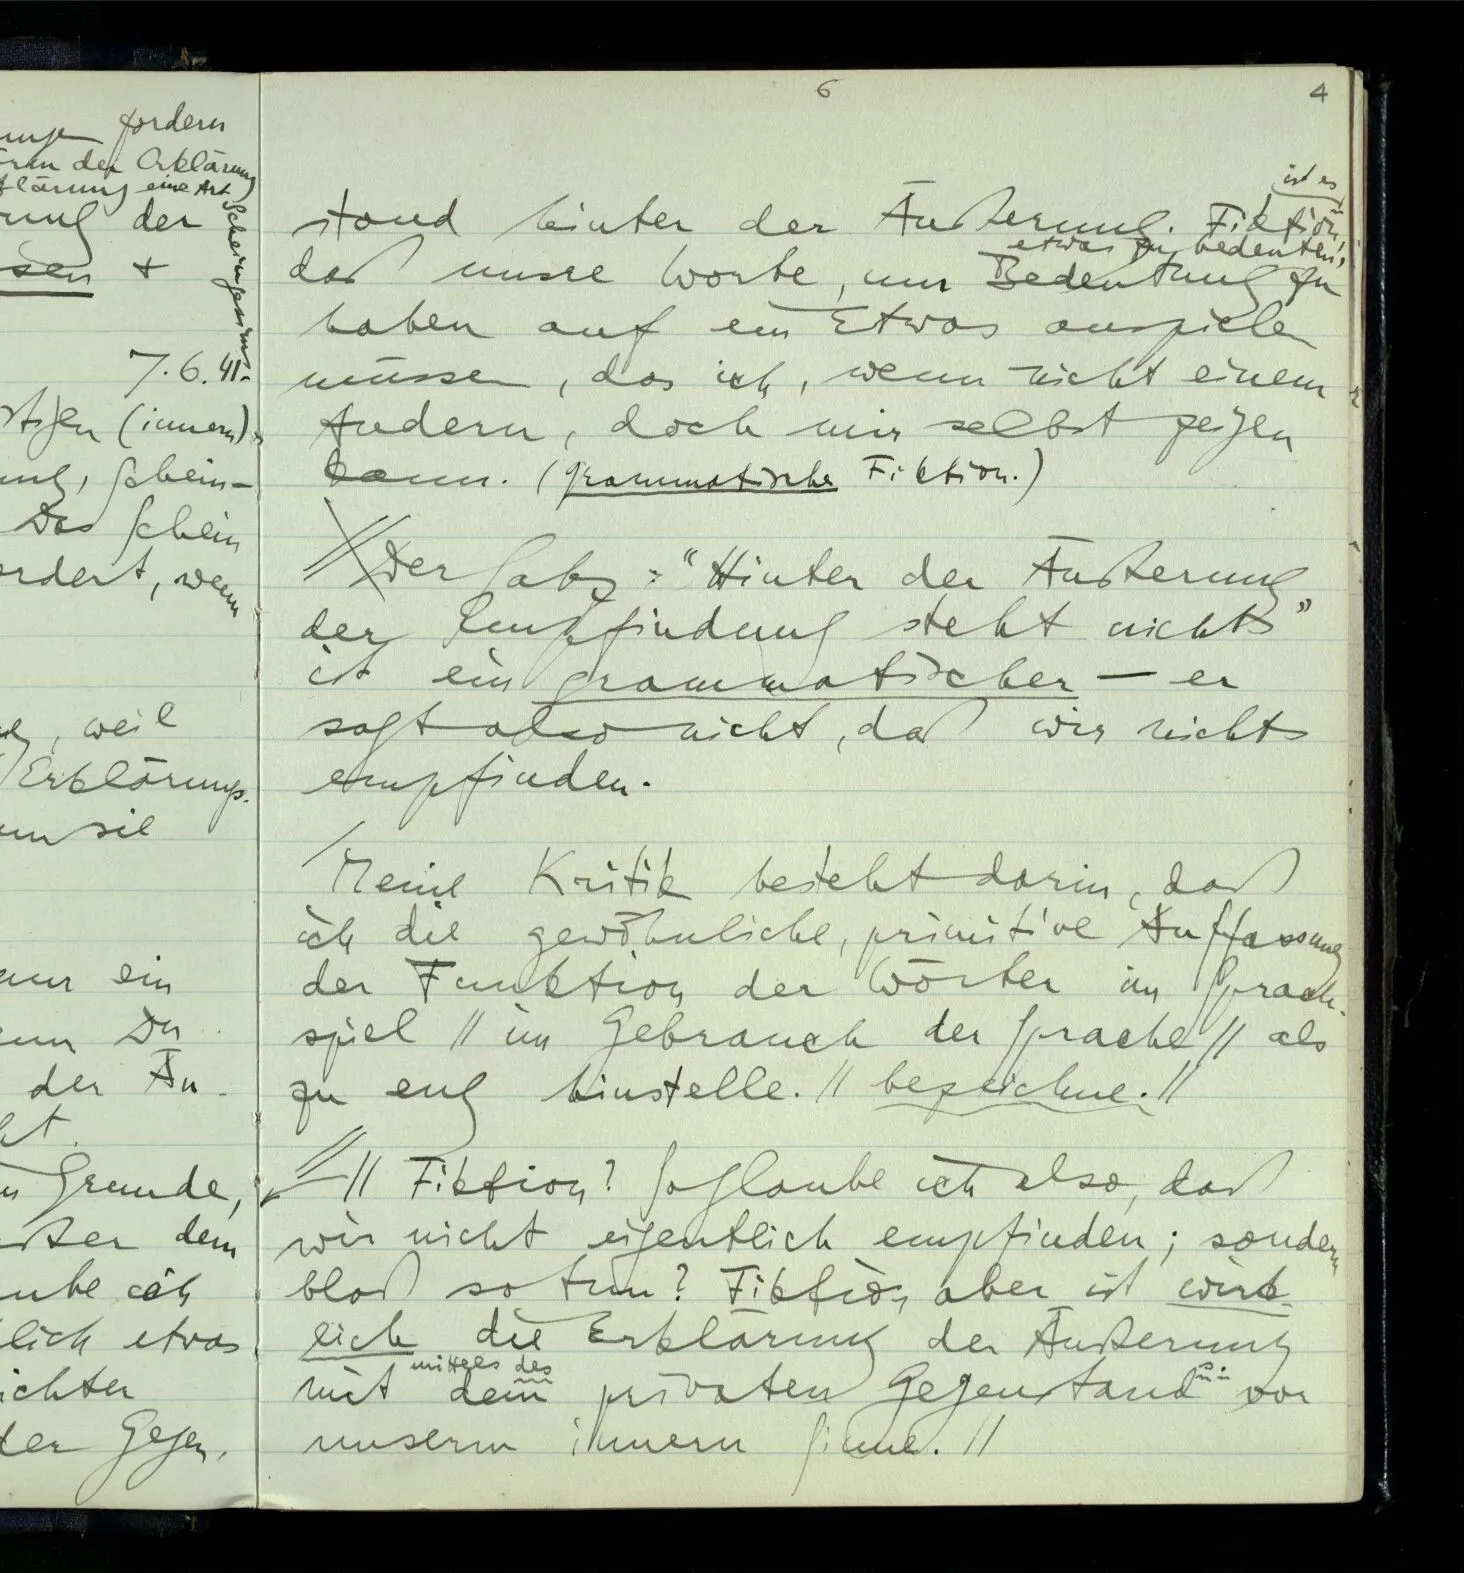 fordern
der Erklärung
eine Art
der
Scheingessims
+
7.6.41.
(innern)
Schein-
Das Schein
wenn
weil
Erklärungs-
sie
ein
Du
der Äu-
Grunde,
dem
ich
etwas
der Gegen-
6 4
stand hinter der Äußerung. Fiktion ist es,
daß unsre Worte, um etwas zu bedeuten, Bedeutung zu
haben auf ein Etwas anspielen
müssen, das ich, wenn nicht einem
Andern, doch mir selbst zeigen
kann. (grammatische Fiktion.)
// Der Satz: "Hinter der Äußerung
der Empfindung steht nichts"
ist ein grammatischer — er
sagt also nicht, daß wir nichts
empfinden.
/ Meine Kritik besteht darin, daß
ich die gewöhnliche, primitive Auffassung
der Funktion der Wörter im Sprach-
spiel // im Gebrauch der Sprache // als
zu eng hinstelle. // bezeichne. //
// Fiktion? So glaube ich also, daß
wir nicht eigentlich empfinden; sondern
bloß so tun? Fiktion aber ist wirk-
lich die Erklärung der Äußerung
mittels des
mit dem privaten Gegenstand s vor
unserm innern Sinne. //